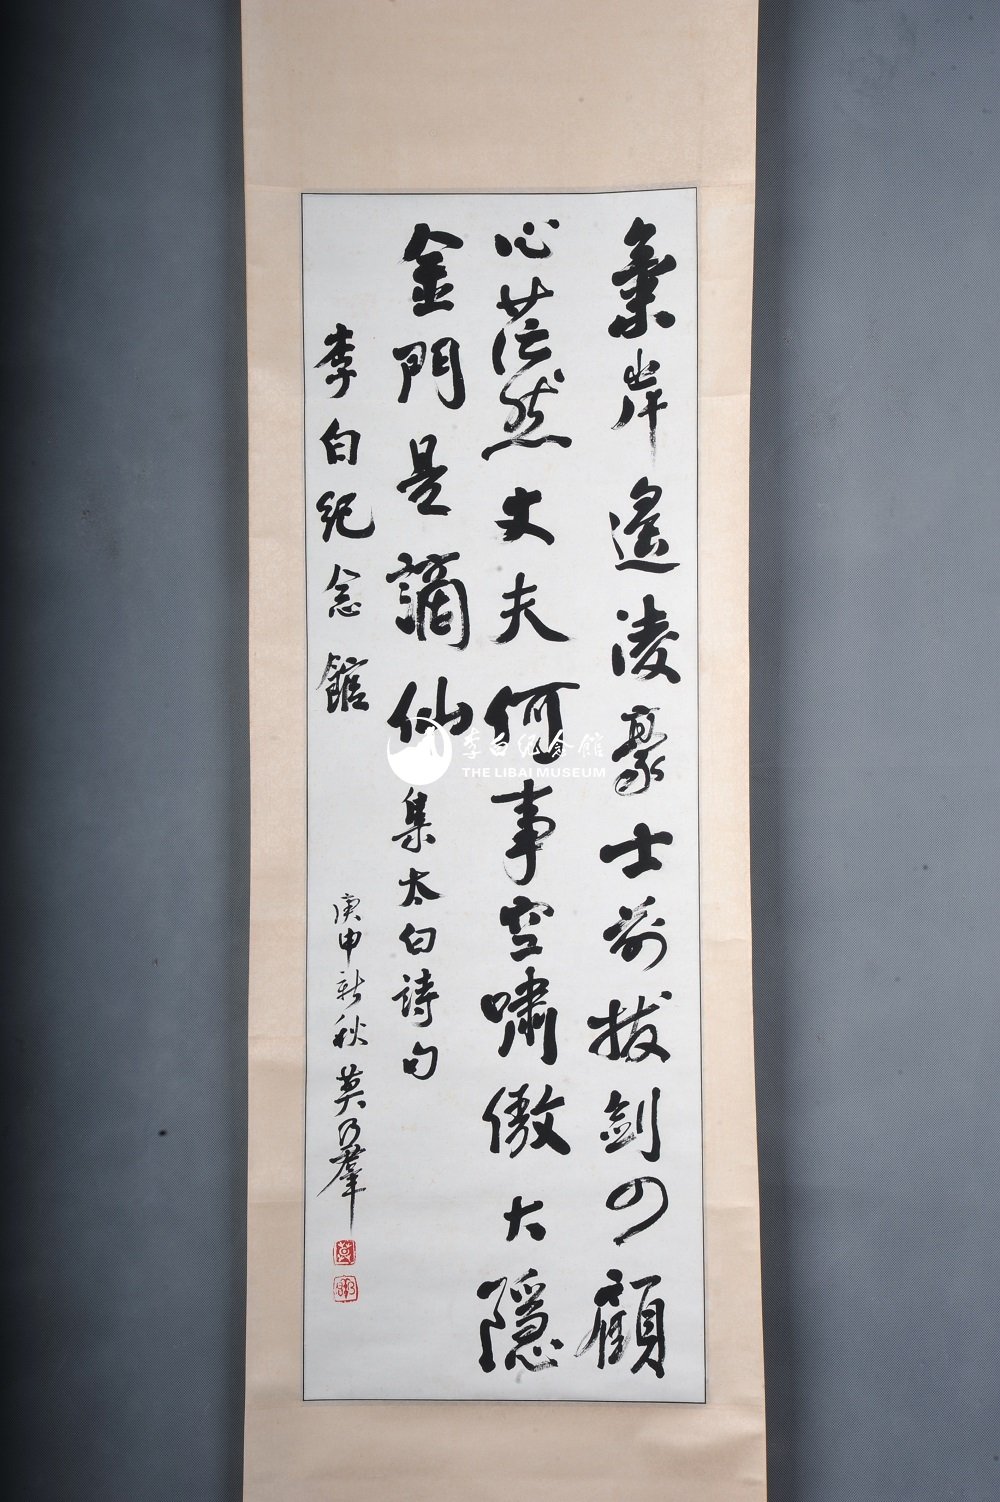 氣岸遙凌豪士前拔劍四顧
心茫然丈夫何事空嘯傲大隱
金門是謫仙 集太白詩句
李白纪念館
庚申新秋 莫乃羣
李白纪念館
THE LIBAI MUSEUM